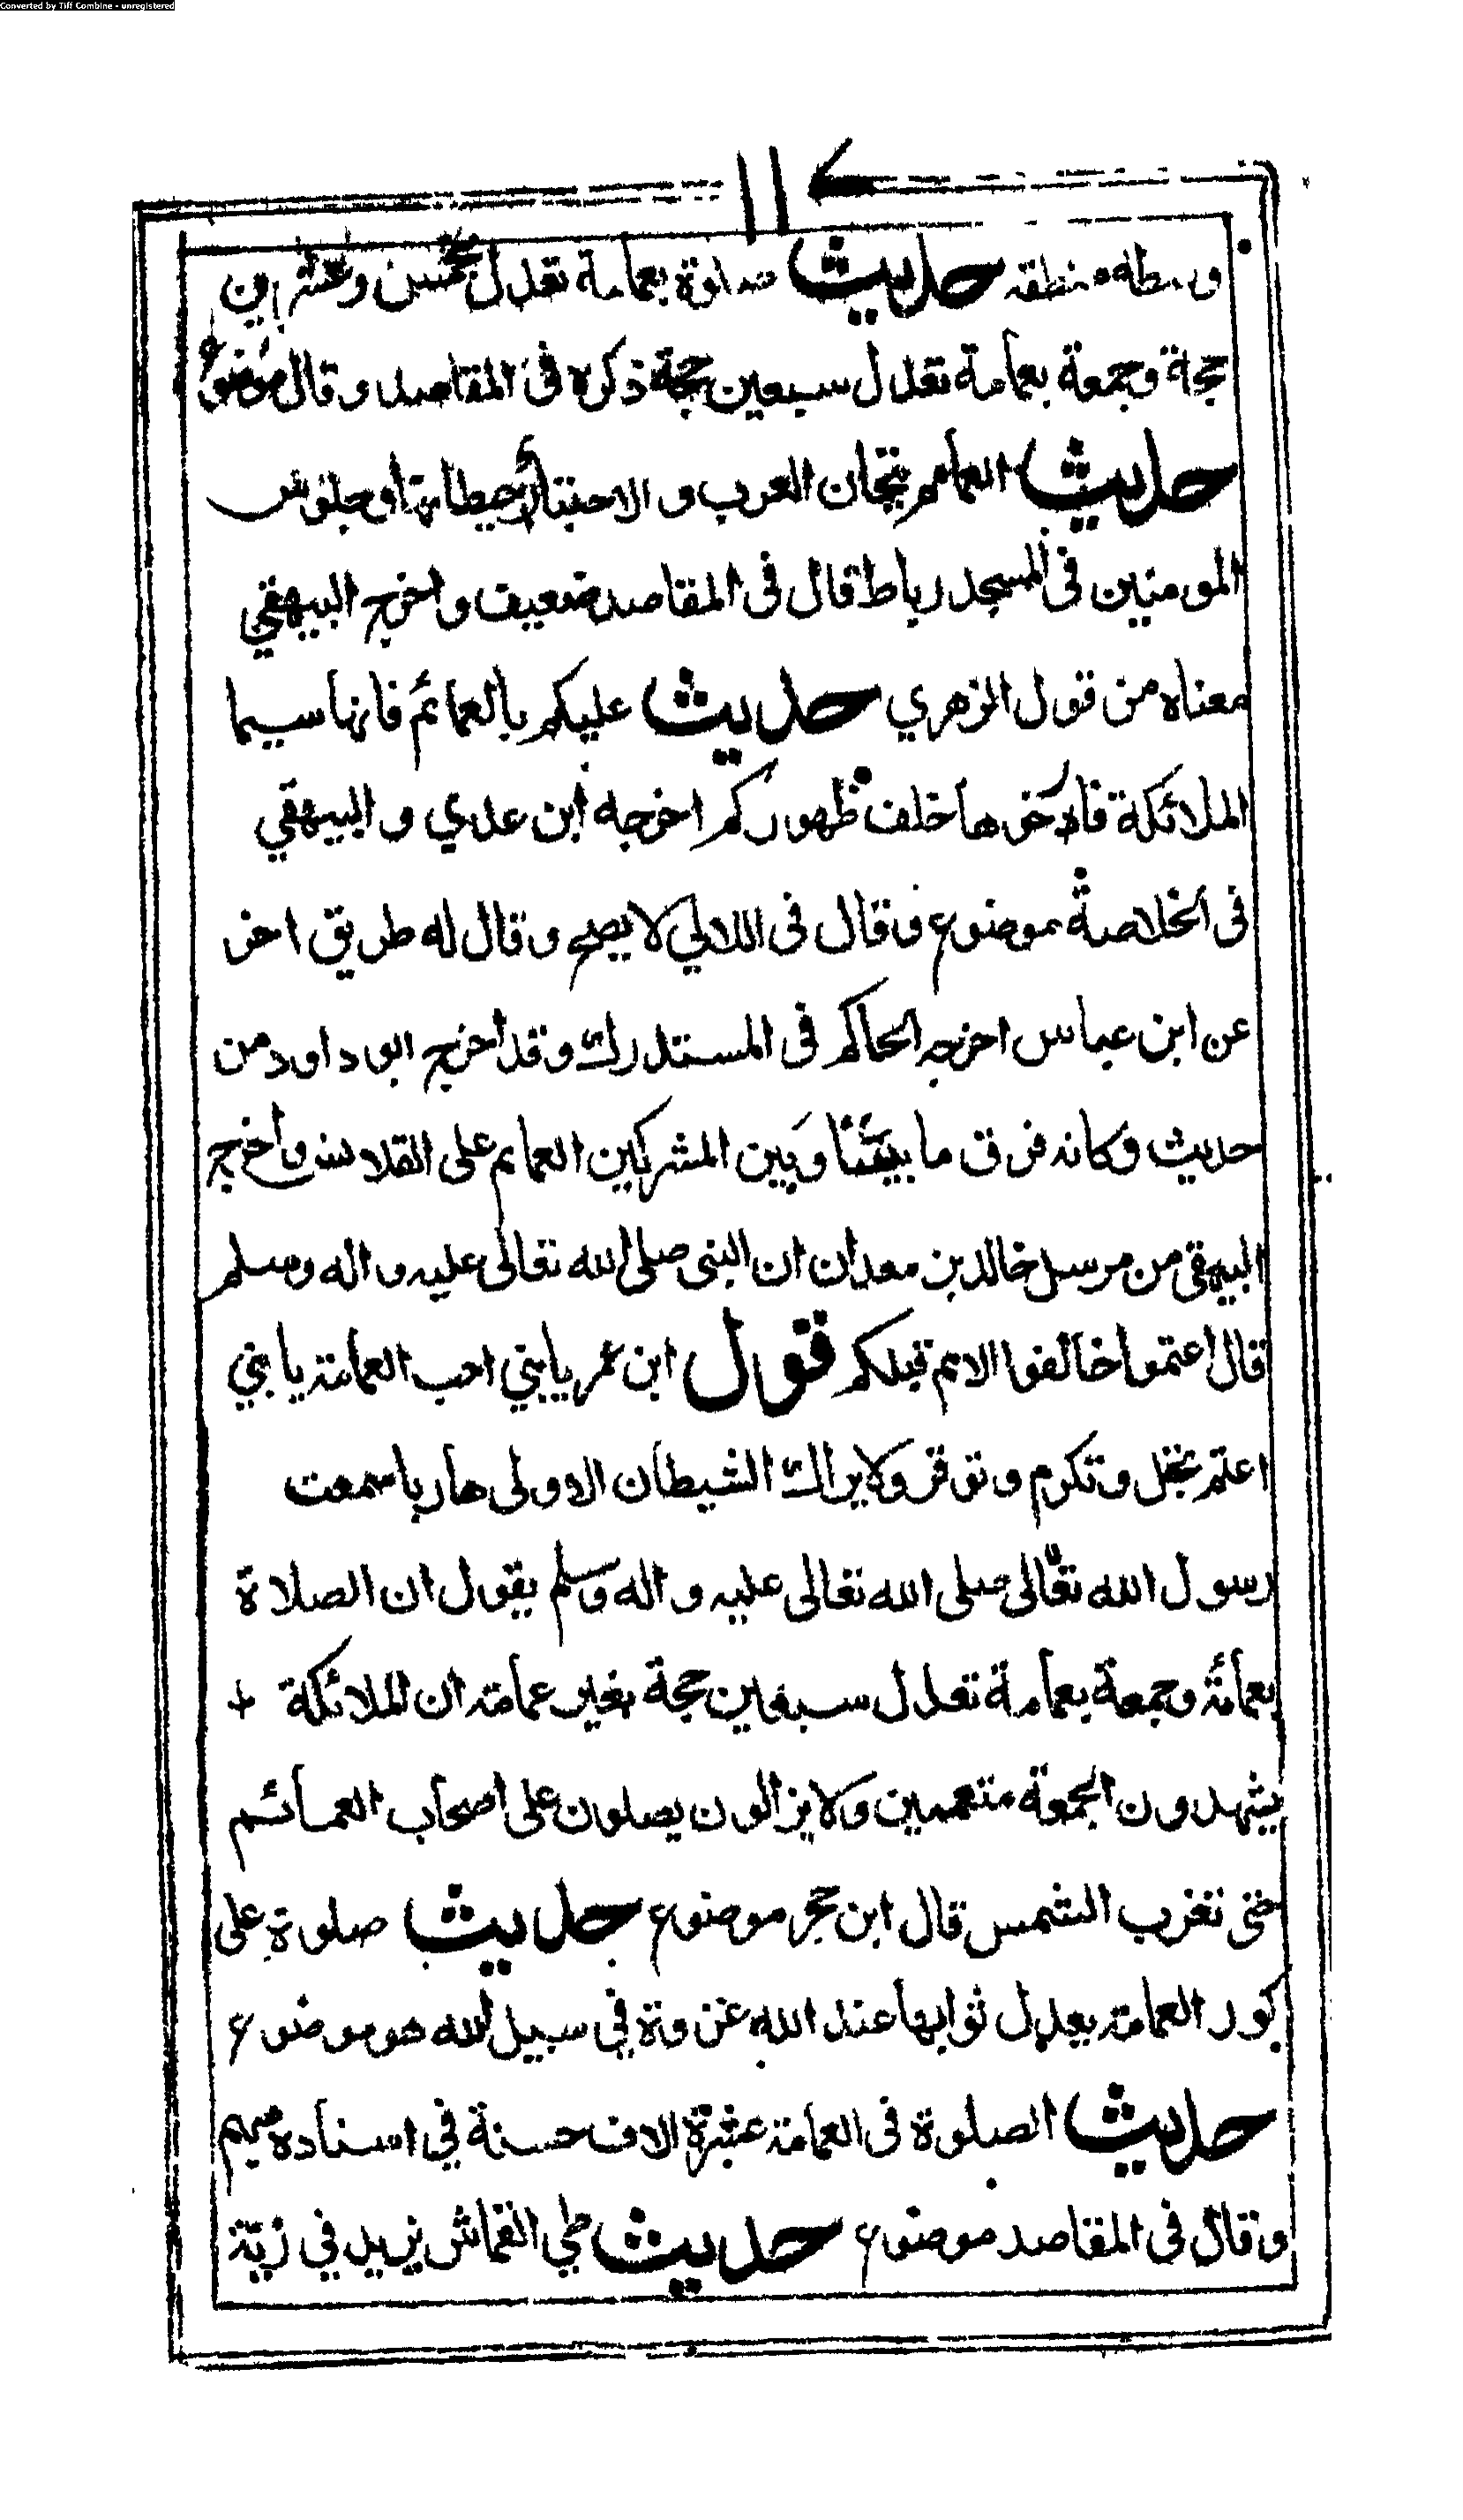 Converted by Tiff Combine - unregistered
١١٤
وسطه منطقه حديث صلوة بعمامة تعدل بخمس وعشرين
حجة وجمعة بعمامة تعدل سبعين حجة ذكره فى المقاصد وقال موضوع
حديث العمائم تيجان العرب و الاحتباء حيطانها وجلوس
المومنين فى المسجد رباط قال فى المقاصد ضعيف واخرج البيهقي
معناه من قول الزهري حديث عليكم بالعمائم فانها سيما
الملائكة فارخوها خلف ظهوركم اخرجه ابن عدي و البيهقي
فى الخلاصة موضوع وقال فى اللالي لا يصح وقال له طريق اخر
عن ابن عباس اخرجه الحاكم فى المستدرك وقد اخرج ابو داود من
حديث وكانه فرق ما بيننا وبين المشركين العمايم على القلانس واخرج
البيهقي من مرسل خالد بن معدان ان النبى صلى الله تعالى عليه واله وسلم
قال اعتموا خالفوا الامم قبلكم قول ابن عمر يابني احب العمامة يابني
اعتم تجل وتكرم وتوقر ولايراك الشيطان الاولى هاربا سمعت
رسول الله تعالى صلى الله تعالى عليه و اله وسلم يقول ان الصلاة
بعمامة وجمعة بعمامة تعدل سبعين حجة بغير عمامة ان الملائكة
يشهدون الجمعة متعممين ولايزالون يصلون على اصحاب العمائم
حتى تغرب الشمس قال ابن حجر موضوع حديث صلوة على
كور العمامة يعدل ثوابها عند الله غزوة في سبيل الله هو موضوع
حديث الصلوة فى العمامة عشرة الاف حسنة في اسناده متهم
وقال فى المقاصد موضوع حديث طي القماش يزيد في زيته